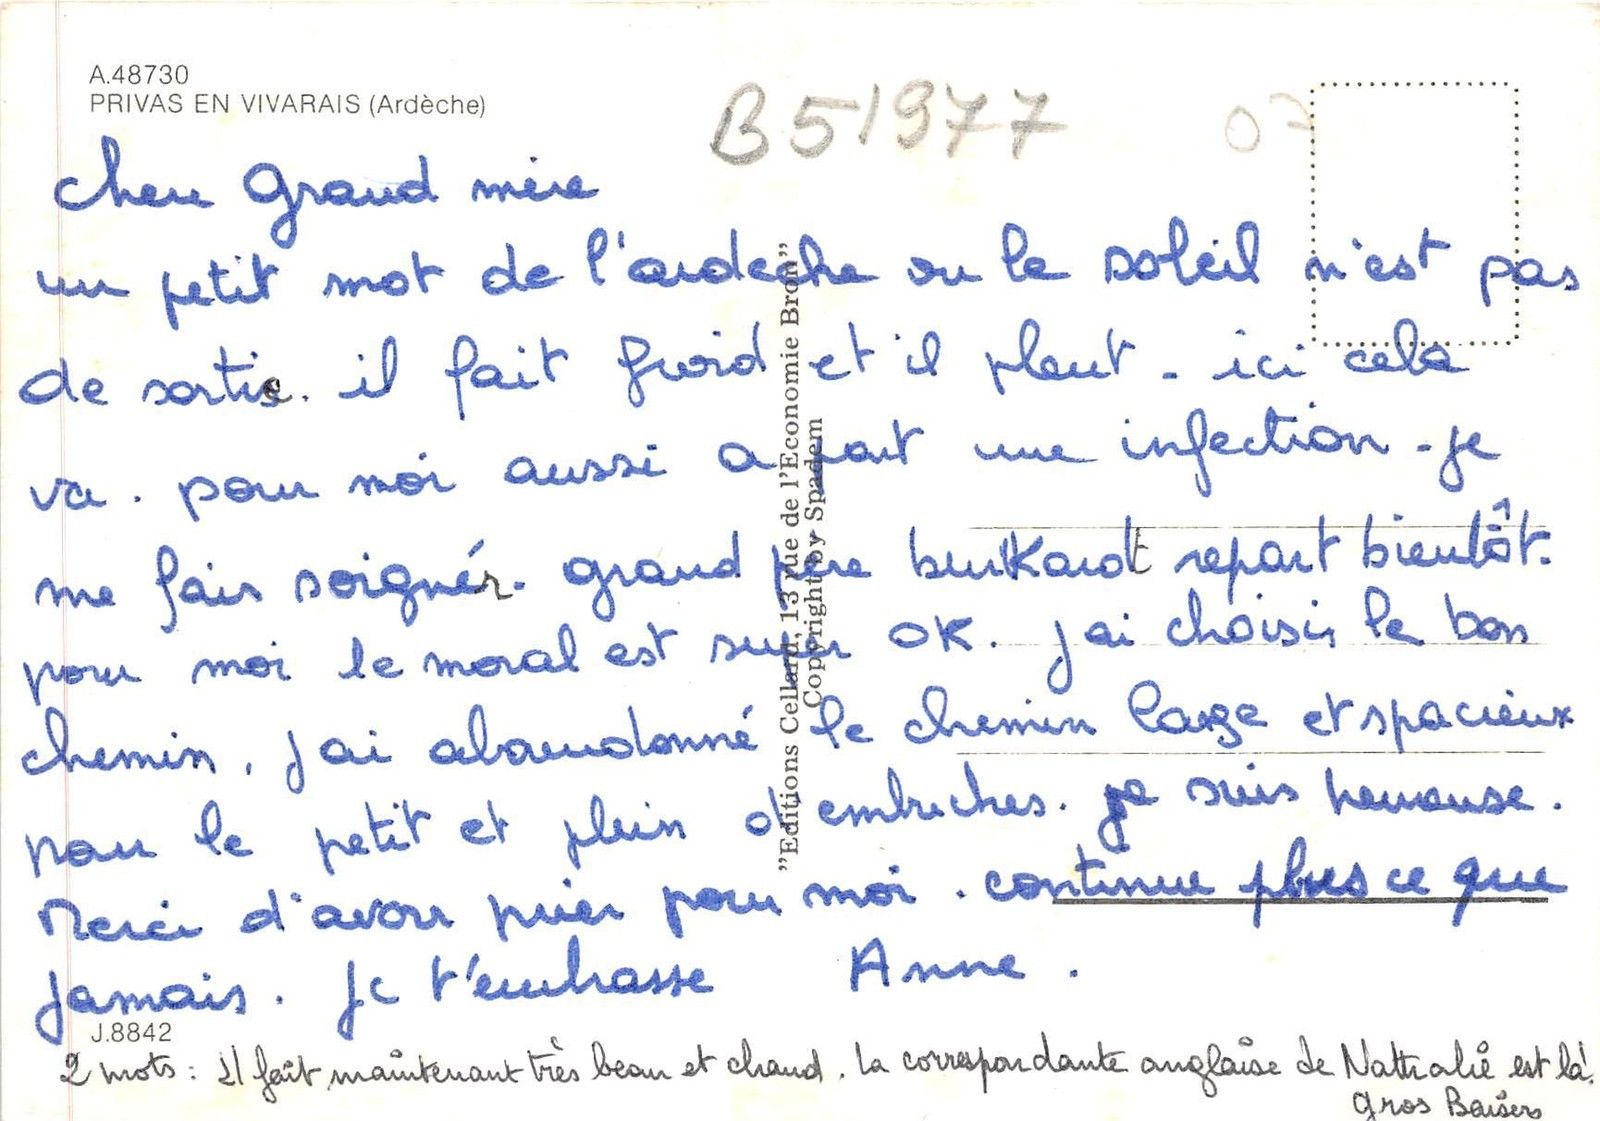 A.48730
PRIVAS EN VIVARAIS (Ardèche)
B51977
07
chere Grand mère
un petit mot de l'ardeche ou le soleil n'est pas
de sortie. il fait froid et il pleut - ici cela
va. pour moi aussi a part une infection - je
me fais soignér. grand père burkardt repart bientôt.
pour moi le moral est super OK. J'ai choisis le bon
chemin, J'ai abandonné le chemin large et spacieux
pour le petit et plein d'embuches. je suis heureuse.
Merci d'avoir prier pour moi. continue plus ce que
jamais. je t'embrasse Anne.
J.8842
2 mots : Il fait maintenant très beau et chaud. La correspondante anglaise de Natthalie est là!
Gros Baisers
"Editions Cellard, 13 rue de l'Economie Bron"
Copyright by Spadem